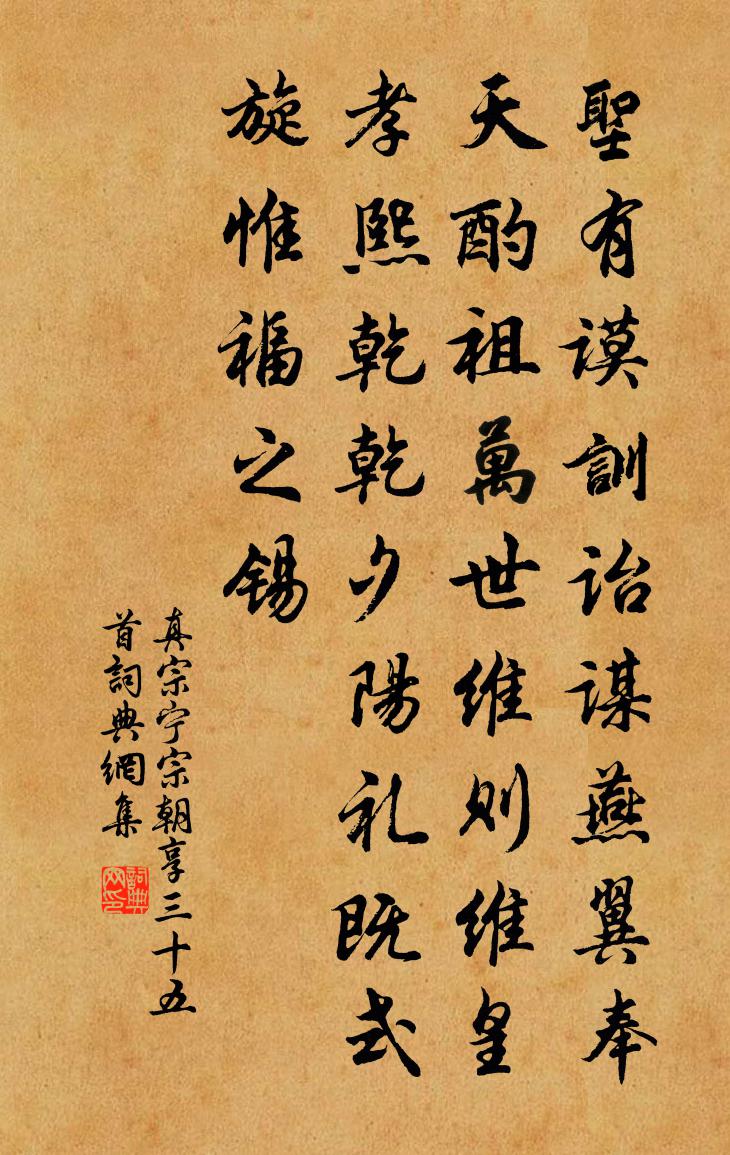 聖有謨訓詒謀燕翼奉
天酌祖萬世維則維皇
孝熙乾乾夕陽礼既式
旋惟福之錫
真宗宁宗朝享三十五
首詞典網集
詞典網印